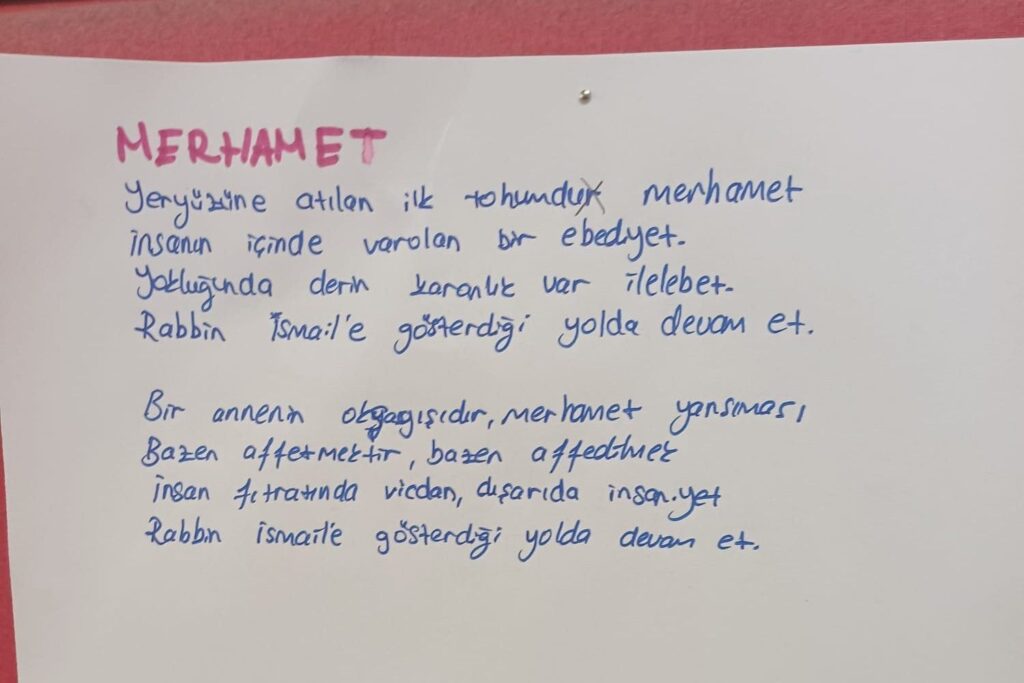 MERHAMET
Yeryüzüne atılan ilk tohumdur merhamet
insanın içinde varolan bir ebediyet.
Yokluğunda derin karanlık var ilelebet.
Rabbin İsmail'e gösterdiği yolda devam et.
Bir annenin merhamet yansıması
Bazen affetmektir, bazen affedilmek
insan fıtratında vicdan, dışarıda insaniyet
Rabbin ismail'e gösterdiği yolda devam et.